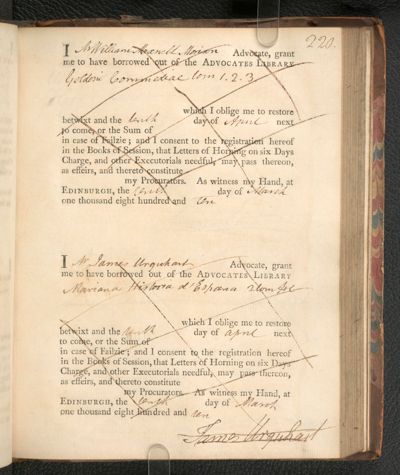 220.
I Mr William Maxwell Morison Advocate, grant
me to have borrowed out of the ADVOCATES LIBRARY
Goldoni Commediae tom 1. 2. 3
which I oblige me to restore
betwixt and the tenth day of April next
to come, or the Sum of
in case of Failzie; and I consent to the registration hereof
in the Books of Session, that Letters of Horning on six Days
Charge, and other Executorials needful, may pass thereon,
as effeirs, and thereto constitute
my Procurators. As witness my Hand, at
EDINBURGH, the tenth day of March
one thousand eight hundred and one
I Mr James Urquhart Advocate, grant
me to have borrowed out of the ADVOCATES LIBRARY
Mariana Historia d'Espana 2 tom fol
which I oblige me to restore
betwixt and the tenth day of april next
to come, or the Sum of
in case of Failzie; and I consent to the registration hereof
in the Books of Session, that Letters of Horning on six Days
Charge, and other Executorials needful, may pass thereon,
as effeirs, and thereto constitute
my Procurators. As witness my Hand, at
EDINBURGH, the tenth day of March
one thousand eight hundred and one
James Urquhart